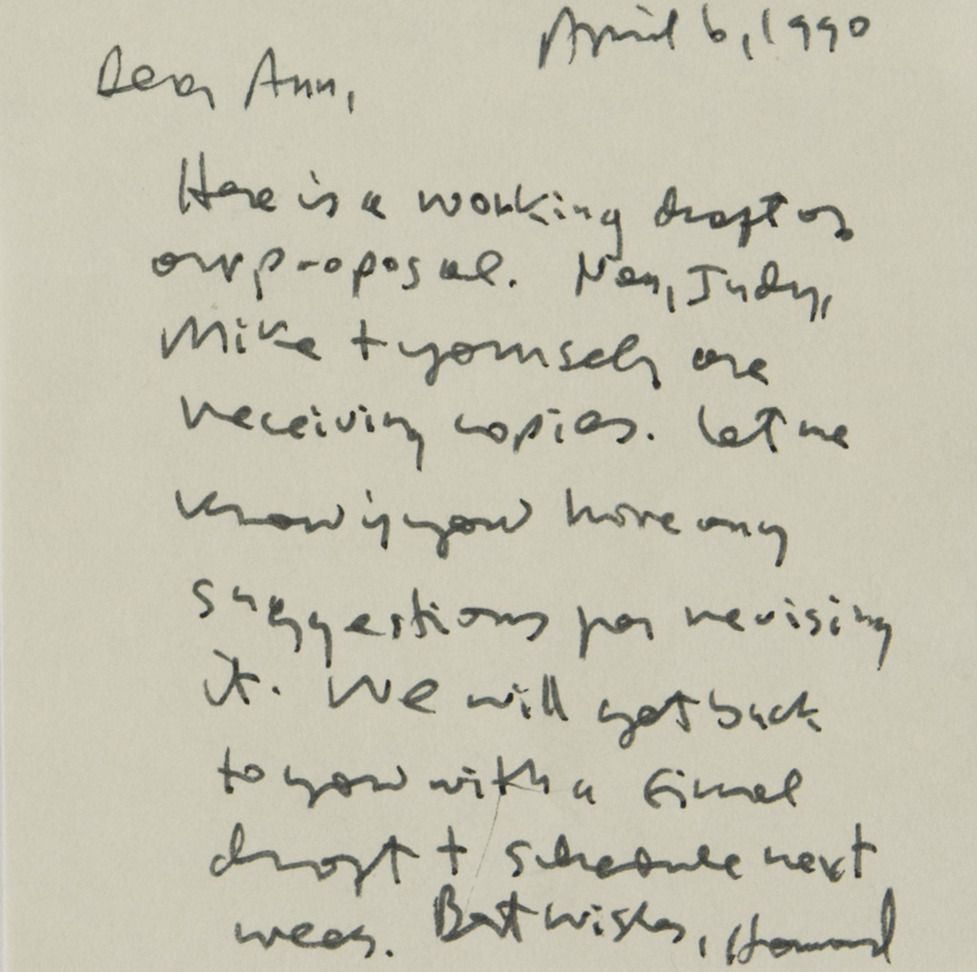 April 6, 1990
Dear Ann,
Here is a working draft of
our proposal. Nan, Judy,
Mike + yourself are
receiving copies. Let me
know if you have any
suggestions for revising
it. We will get back
to you with a final
draft + schedule next
week. Best wishes, Howard